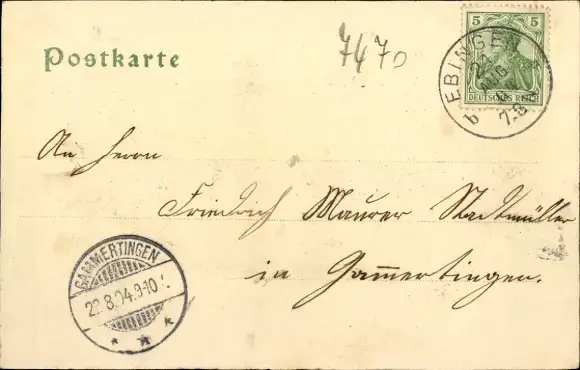 7470
5 5
DEUTSCHES REICH
EBINGEN
AUG
7-8
b
Postkarte
An Herrn
Friedrich Maurer Stadtmüller
in Gammertingen.
GAMMERTINGEN
22.8.04.9-10